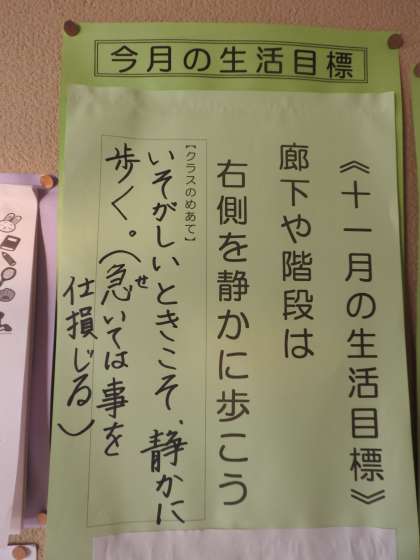 今月の生活目標
《十一月の生活目標》
廊下や階段は
右側を静かに歩こう
【クラスのめあて】
いそがしいときこそ、静かに
歩く。(急いては事を
せ
仕損じる)